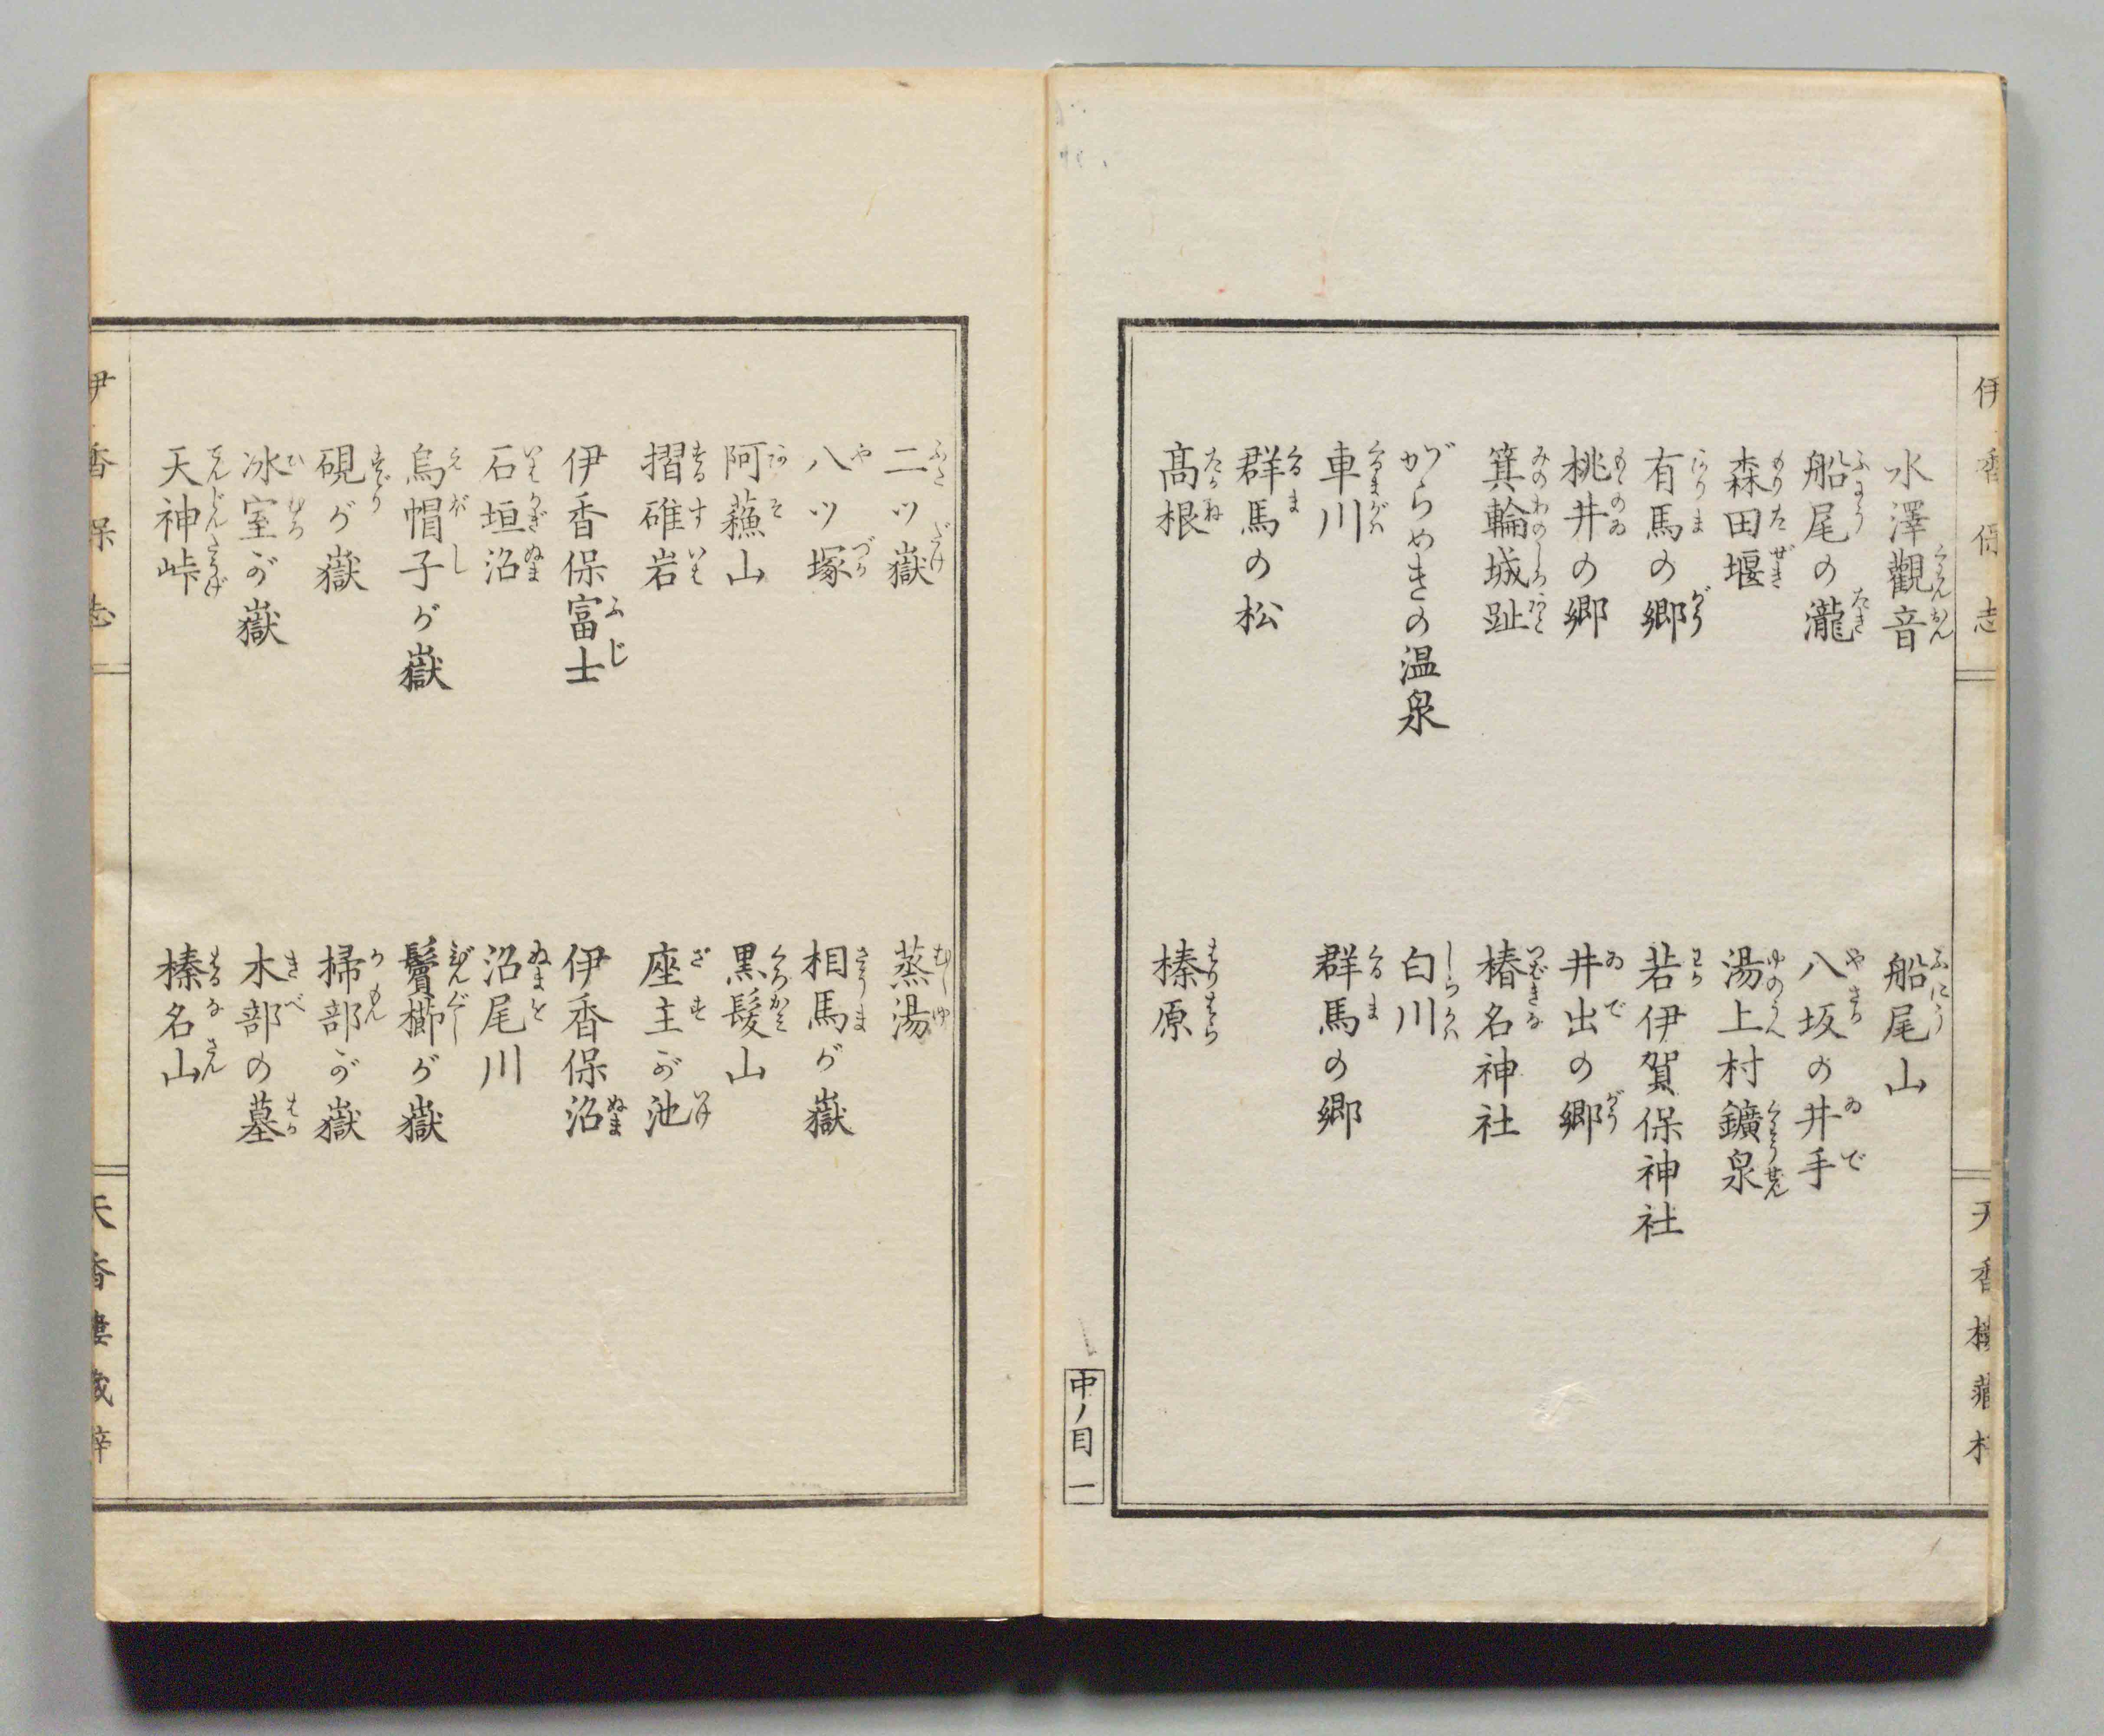 伊香保志
水澤觀音
船尾山
船尾の瀧
八坂の井手
森田堰
湯上村鑛泉
有馬の郷
若伊賀保神社
桃井の郷
井出の郷
箕輪城趾
椿名神社
がらめきの温泉
白川
車川
群馬の郷
群馬の松
髙根
榛原
天香樓藏梓
中ノ目一
二ツ嶽
蒸湯
八ツ塚
相馬が嶽
阿蘓山
黒髪山
摺碓岩
座主が池
伊香保富士
伊香保沼
石垣沼
沼尾川
烏帽子が嶽
鬢櫛が嶽
硯が嶽
掃部が嶽
冰室が嶽
木部の墓
天神峠
榛名山
伊香保志
天香樓藏梓